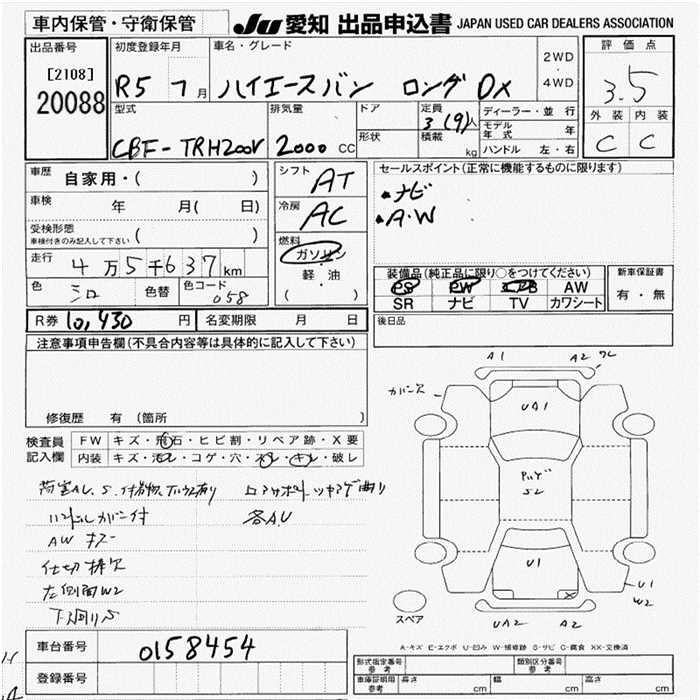 車内保管・守衛保管
JU 愛知 出品申込書 JAPAN USED CAR DEALERS ASSOCIATION
出品番号
[2108]
20088
初度登録年月
R5 7 月
車名・グレード
ハイエースバン ロング DX
2WD
・
4WD
評価点
3.5
外装 内装
C C
型式
CBF-TRH200V
排気量
2000 CC
ドア
形状
定員
3(9)人
積載
kg
ディーラー・並行
モデル年式 年
ハンドル 左・右
車歴
自家用・( )
車検
年 月( 日)
受検形態
車検付きのみ記入して下さい ( )
走行
4万5千637km
色
シロ
色替
色コード
058
シフト
AT
冷房
AC
燃料
ガソリン
・
軽・油
( )
セールスポイント(正常に機能するものに限ります)
・ナビ
・A.W
装備品(純正品に限り○をつけてください)
PS PW エアB AW
SR ナビ TV カワシート
新車保証書
有・無
後日品
R券 10,430 円
名変期限 月 日
注意事項申告欄(不具合内容等は具体的に記入して下さい)
修復歴 有 (箇所 )
検査員
記入欄
FW キズ・飛石・ヒビ割・リペア跡・X要
内装 キズ・汚レ・コゲ・穴・スレ・キレ・破レ
ハンドルカバー付
AW キズ
仕切棒欠
左側面W2
下回りS
各A,U
A1
A2
カバー欠
UA1
S2
U1
U1
W2
UA2
A2
スペア
A-キズ E-エクボ U-凹み W-補修跡 S-サビ C-腐食 XX-交換済
車台番号
0158454
登録番号
形式指定番号
参考
類別区分番号
参考
車庫証明用
参考
長さ cm
幅 cm
高さ cm